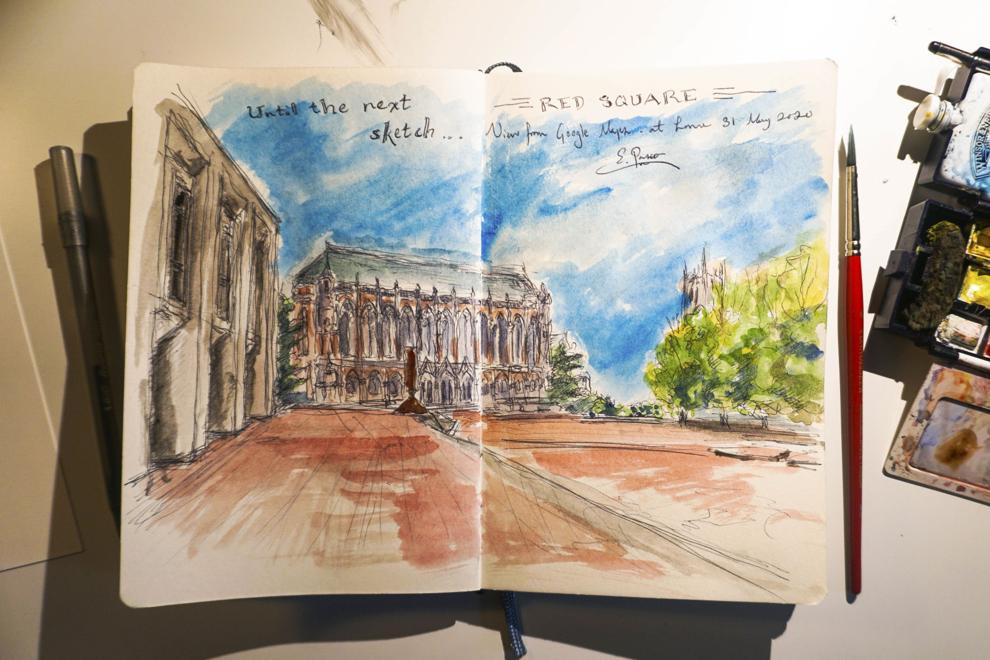 Until the next
sketch...
RED SQUARE
View from Google Maps. at home 31 May 2020
E.
WINSOR